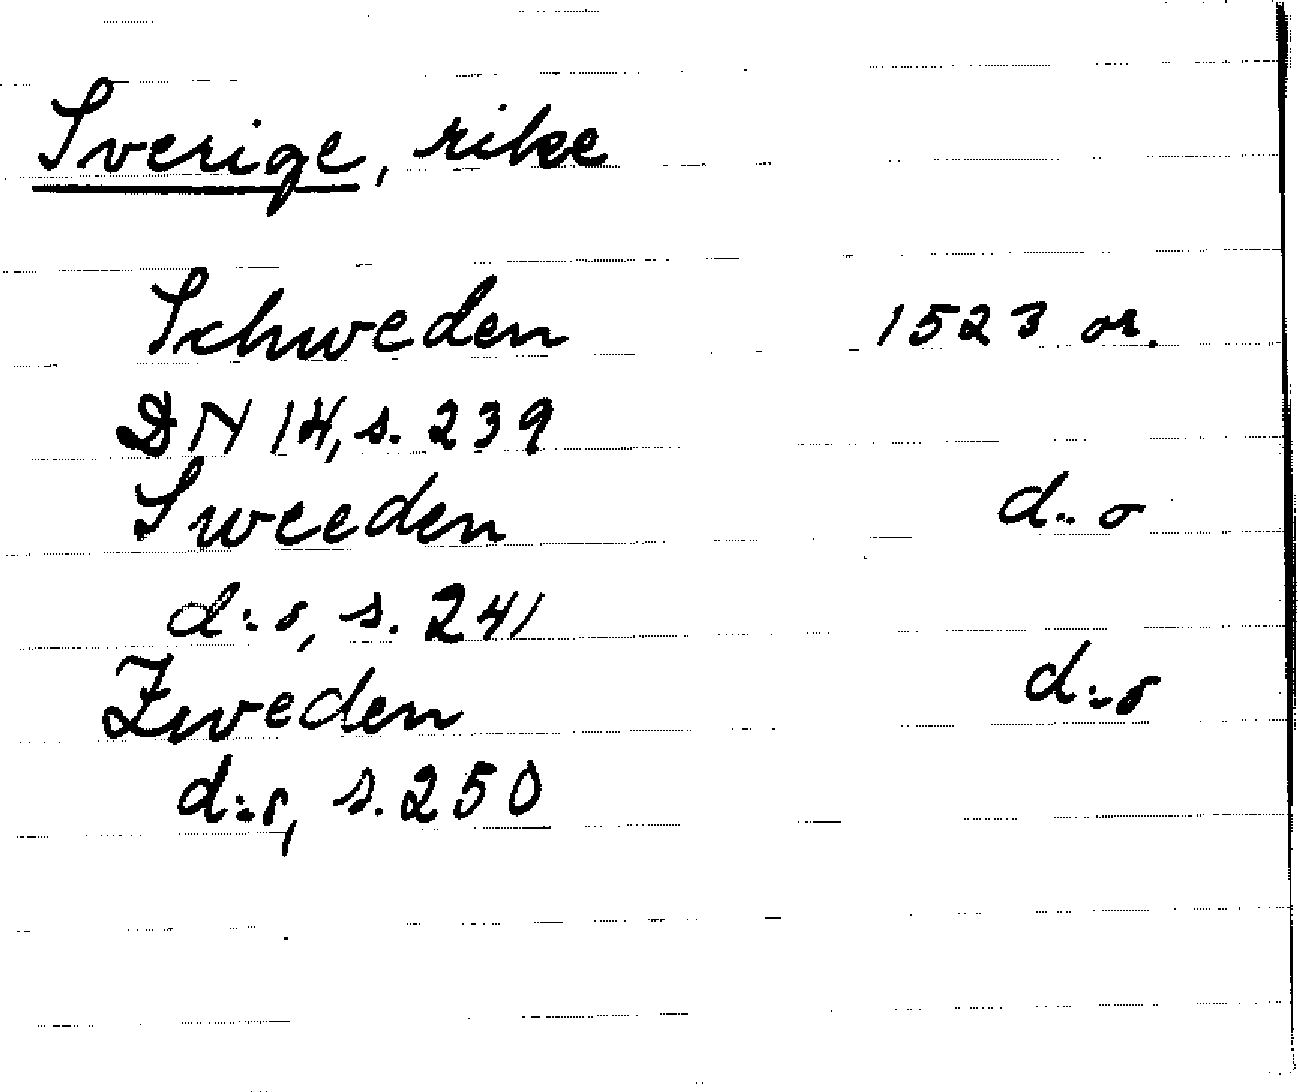 Sverige, rike
Schweden 1523 or.
DN 14, s. 239
Sweeden d:o
d:o, s. 241
Zweden d:o
d:o, s. 250